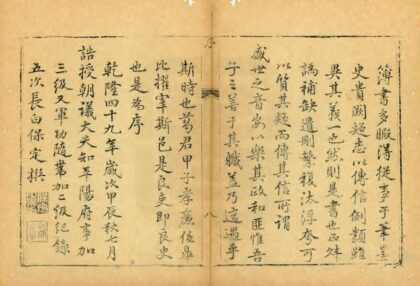 簿書多暇得從事于筆墨
史貴闕疑志以傳信例類雖
異其義一也然則是書也正舛
譌補缺遺刪繁複汰浮夸可
以質其疑而傳其信所謂
盛世之音安以樂其政和匪惟吾
子之善于其職蓋乃遭遇乎
斯時也葛君甲子孝廉
比擢宰斯邑是良吏即良史
也是為序
乾隆四十九年歲次甲辰秋七月
誥授朝議大夫知平陽府事加
三級又軍功隨帶加二級紀錄
五次長白保定撰
序
八